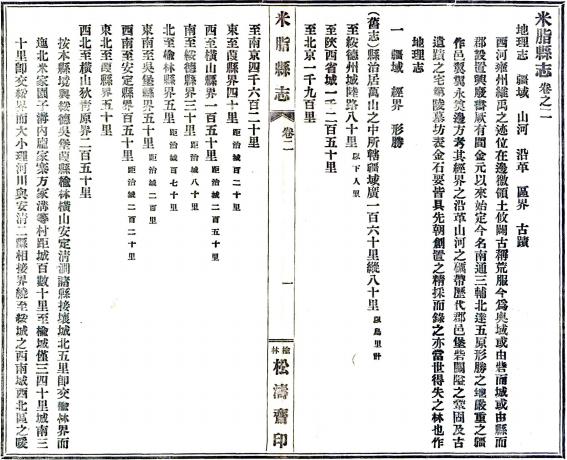 米脂縣志 卷之二
地理志 疆域 山河 沿革 區界 古蹟
西河雍州織禹之迹位在邊徼領土攸關古稱荒服今為奧域或由砦而城或由縣而
郡設置興廢書厥有間金元以來始定今名南通三輔北達五原形勝之地嚴重之疆
作邑翼翼永奠邊方考其經界之沿革山河之礪帶歷代郡邑堡砦關隘之鞏固及古
遺蹟之宅第陵墓坊表金石要皆具先朝創置之精採而錄之亦當世得失之林也作
地理志
一 疆域 經界 形勝
(舊志)縣治居萬山之中所轄疆域廣一百六十里縱八十里 以鳥里計
至綏德州城陸路八十里 以下人里
至陝西省城一千二百五十里
至北京一千九百里
米脂縣志
卷二
一
榆林 松濤齋印
至南京四千六百二十里
東至葭縣界四十里 距治城百二十里
西至橫山縣界一百五十里 距治城二百五十里
南至綏德縣界三十里 距治城八十里
北至榆林縣界五里 距治城百七十里
東南至吳堡縣界五十里 距治城二百里
西南至安定縣界百五十里 距治城二百二十里
東北至葭縣界五十里
西北至橫山狄青原界二百五十里
按本縣境與綏德吳堡葭縣榆林橫山安定清澗諸縣接壤城北五里即交榆林界而
迤北米家園子溝內龐家寨方家溝等村距城百數十里至榆城僅三四十里城南三
十里即交綏界而大小理河川與安清二縣相接界繞至綏城之西南城西北區之暖